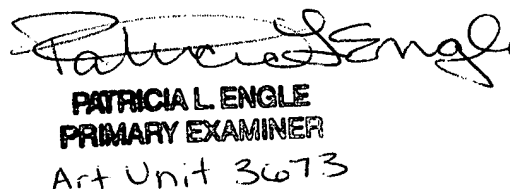 Patricia L Engle
PATRICIA L. ENGLE
PRIMARY EXAMINER
Art Unit 3673